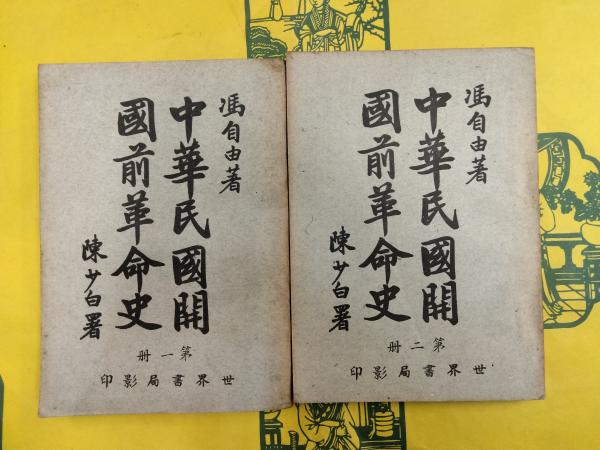 馮自由著
中華民國開
國前革命史
陳少白署
第一冊
世界書局影印
馮自由著
中華民國開
國前革命史
陳少白署
第二冊
世界書局影印